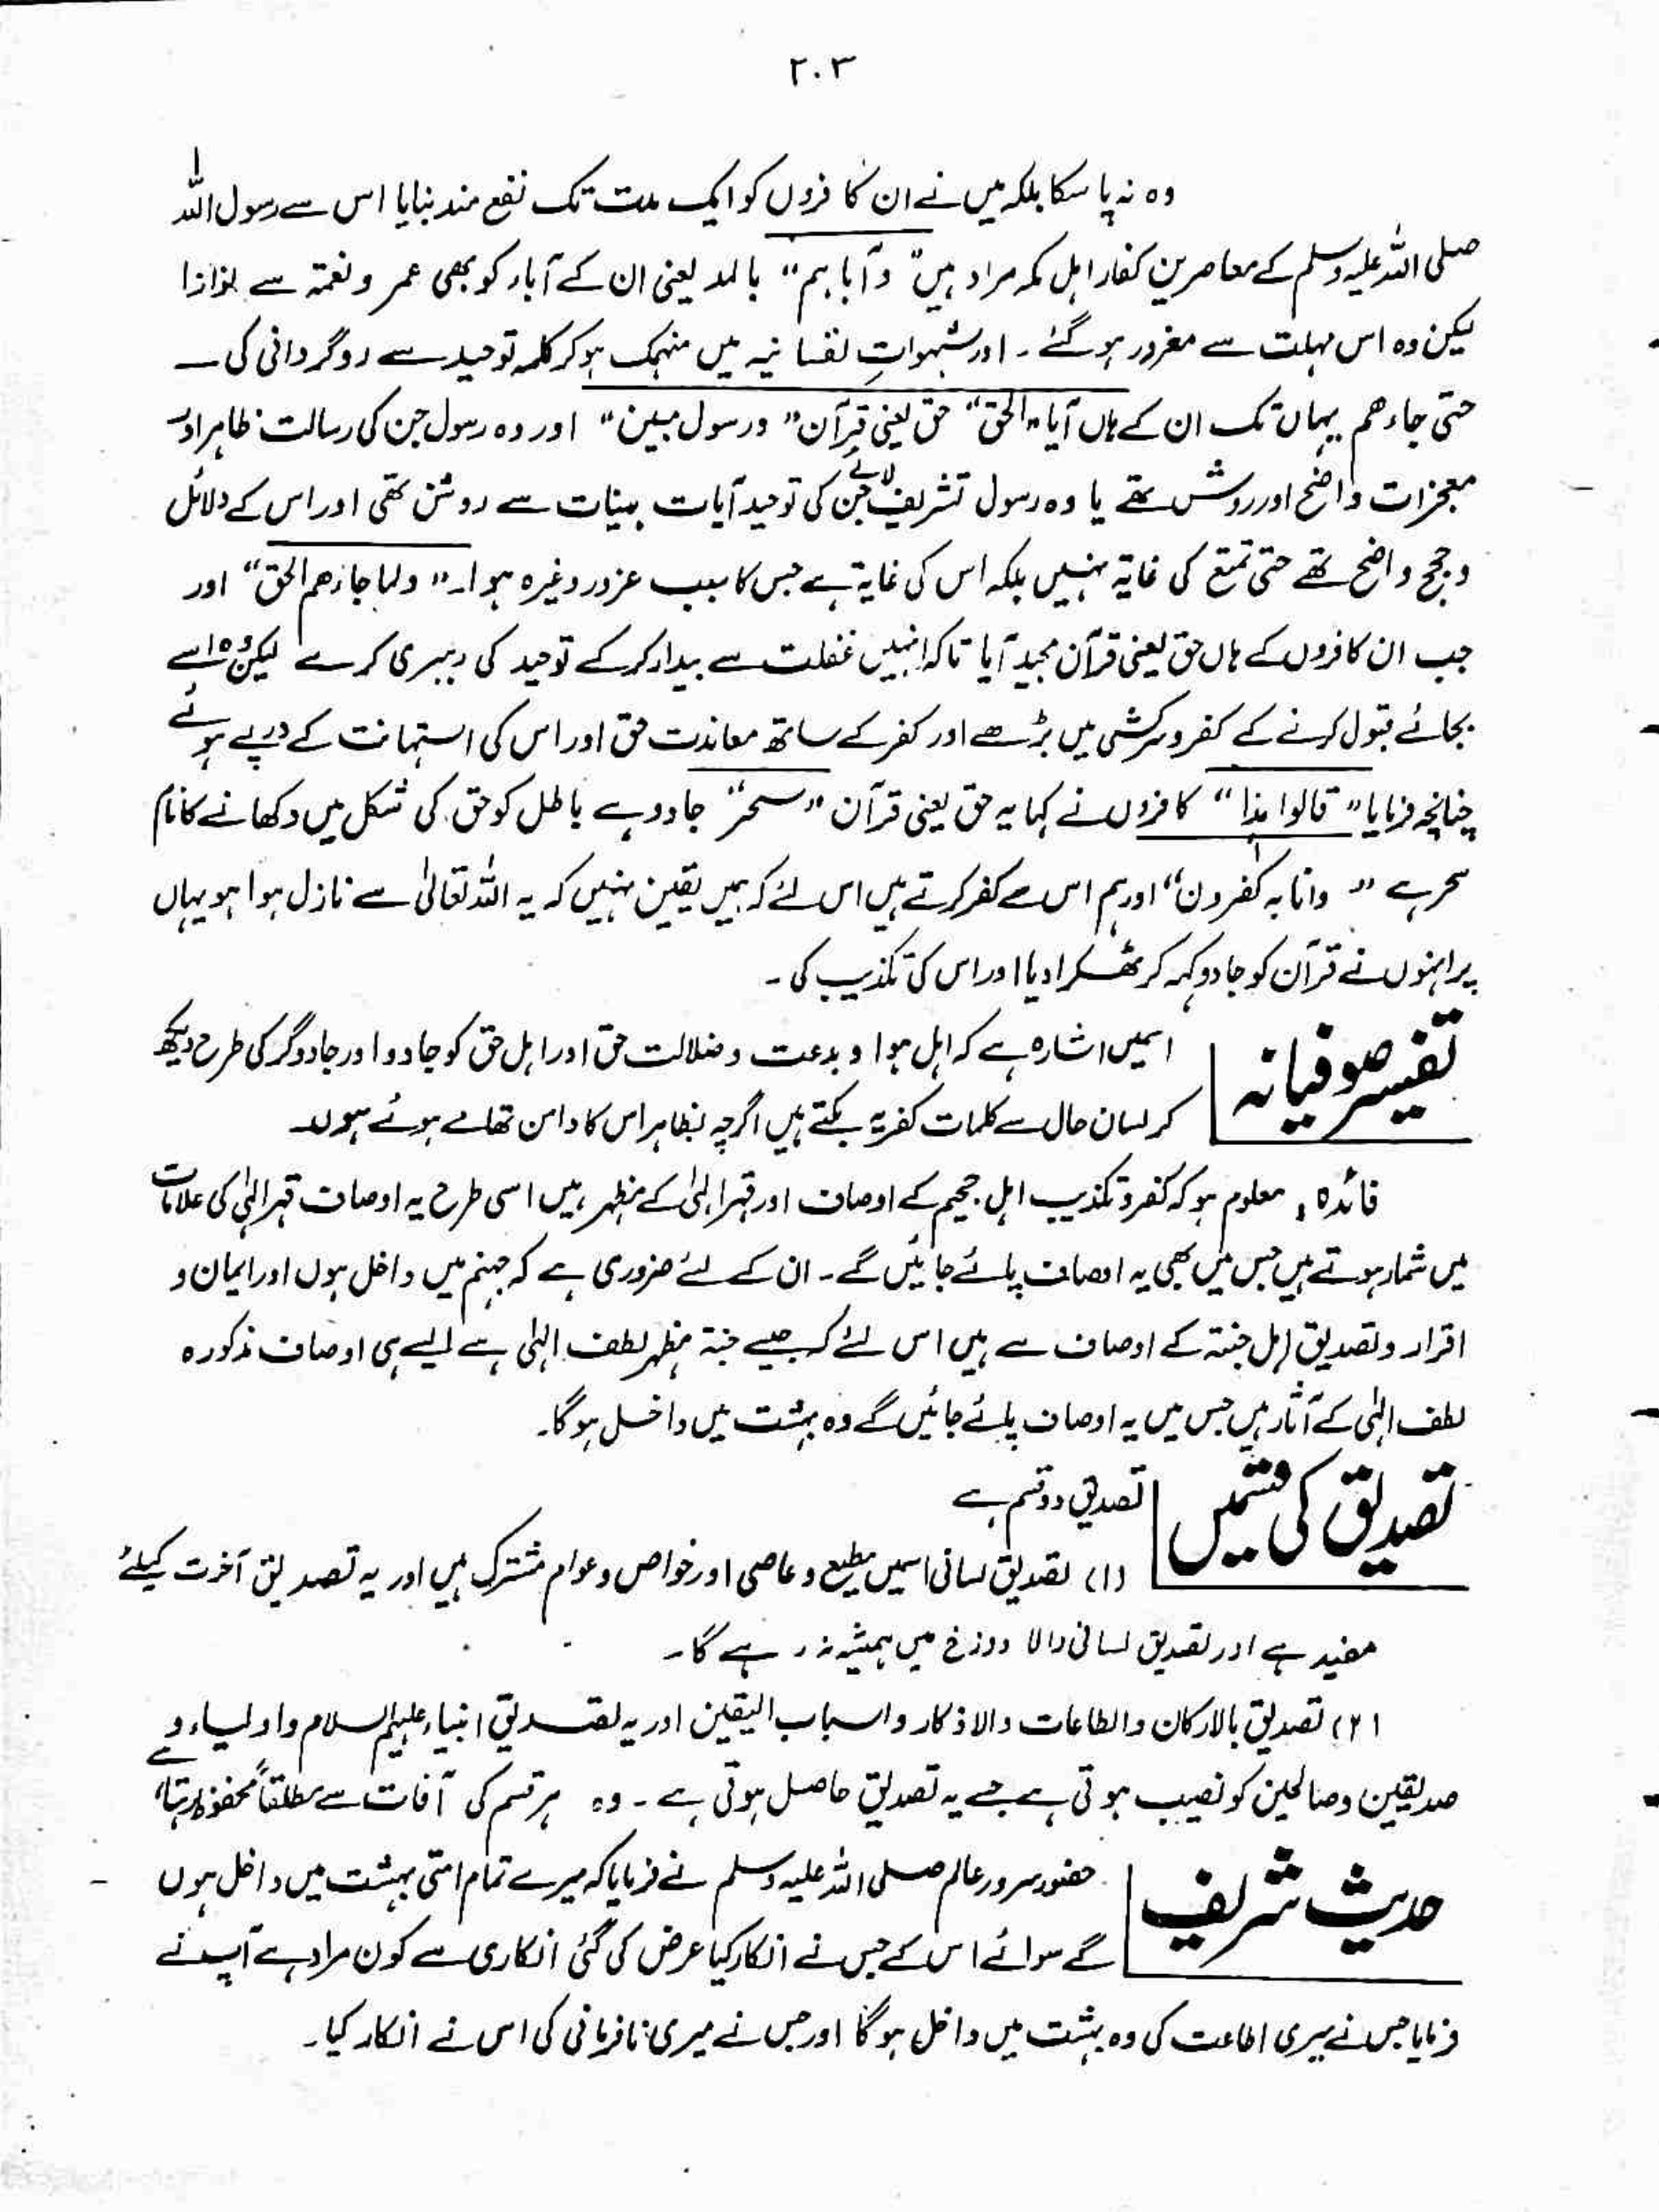 ۲۰۳
وہ نہ پا سکا بلکہ میں نے ان کافروں کو ایک مدت تک نفع مند بنایا اس سے رسول اللہ
صلی اللہ علیہ وسلم کے معاصرین کفار اہل مکہ مراد ہیں " و آباہم " بالمد یعنی ان کے آباء کو بھی عمر و نعمۃ سے نوازا
لیکن وہ اس مہلت سے مغرور ہو گئے ۔ اور شہواتِ نفسانیہ میں منہمک ہو کر کلمہ توحید سے روگردانی کی ۔
حتی جاءھم یہاں تک ان کے ہاں آیا " الحق " حق یعنی قرآن " ورسول مبین " اور وہ رسول جن کی رسالت ظاہر اور
معجزات واضح اور روشن تھے یا وہ رسول تشریف لائے جن کی توحید آیات بینات سے روشن تھی اور اس کے دلائل
و حجج واضح تھے حتی تمتع کی غایۃ نہیں بلکہ اس کی غایۃ ہے جس کا سبب غرور وغیرہ ہوا ۔ " ولما جاءھم الحق " اور
جب ان کافروں کے ہاں حق یعنی قرآن مجید آیا تاکہ انہیں غفلت سے بیدار کر کے توحید کی رہبری کرے لیکن وہ اسے
بجائے قبول کرنے کے کفر و سرکشی میں بڑھے اور کفر کے ساتھ معاندت حق اور اس کی استہانت کے درپے ہوئے
چنانچہ فرمایا " قالوا ہذا " کافروں نے کہا یہ حق یعنی قرآن " سحر " جادو ہے باطل کو حق کی شکل میں دکھانے کا نام
سحر ہے " وانا بہ کٰفرون " اور ہم اس سے کفر کرتے ہیں اس لئے کہ ہمیں یقین نہیں کہ یہ اللہ تعالیٰ سے نازل ہوا ہو یہاں
پر انہوں نے قرآن کو جادو کہہ کر ٹھکرا دیا اور اس کی تکذیب کی ۔
تفسیر صوفیانہ
اسمیں اشارہ ہے کہ اہل ہوا و بدعت و ضلالت حق اور اہل حق کو جادو اور جادوگر کی طرح دیکھ
کر لسان حال سے کلمات کفریہ بکتے ہیں اگرچہ بظاہر اس کا دامن تھامے ہوئے ہوں ۔
فائدہ : معلوم ہو کہ کفر و تکذیب اہل جحیم کے اوصاف اور قہر الٰہی کے مظہر ہیں اسی طرح یہ اوصاف قہر الٰہی کی علامات
میں شمار ہوتے ہیں جس میں بھی یہ اوصاف پائے جائیں گے ۔ ان کے لئے ضروری ہے کہ جہنم میں داخل ہوں اور ایمان و
اقرار و تصدیق اہل جنۃ کے اوصاف سے ہیں اس لئے کہ جیسے جنۃ مظہر لطف الٰہی ہے ایسے ہی اوصاف مذکورہ
لطف الٰہی کے آثار ہیں جس میں یہ اوصاف پائے جائیں گے وہ بہشت میں داخل ہوگا ۔
تصدیق کی قسمیں
تصدیق دو قسم ہے
(۱) تصدیق لسانی اسمیں مطیع و عاصی اور خواص و عوام مشترک ہیں اور یہ تصدیق آخرت کیلئے
مفید ہے اور تصدیق لسانی والا دوزخ میں ہمیشہ نہ رہے گا ۔
(۲) تصدیق بالارکان والطاعات والاذکار واسباب الیقین اور یہ تصدیق انبیاء علیہم السلام و اولیاء و
صدیقین و صالحین کو نصیب ہوتی ہے جسے یہ تصدیق حاصل ہوتی ہے ۔ وہ ہر قسم کی آفات سے مطلقاً محفوظ رہتا ہے
حدیث شریف
حضور سرور عالم صلی اللہ علیہ وسلم نے فرمایا کہ میرے تمام امتی بہشت میں داخل ہوں
گے سوائے اس کے جس نے انکار کیا عرض کی گئی انکاری سے کون مراد ہے آپ نے
فرمایا جس نے میری اطاعت کی وہ بہشت میں داخل ہوگا اور جس نے میری نافرمانی کی اس نے انکار کیا ۔